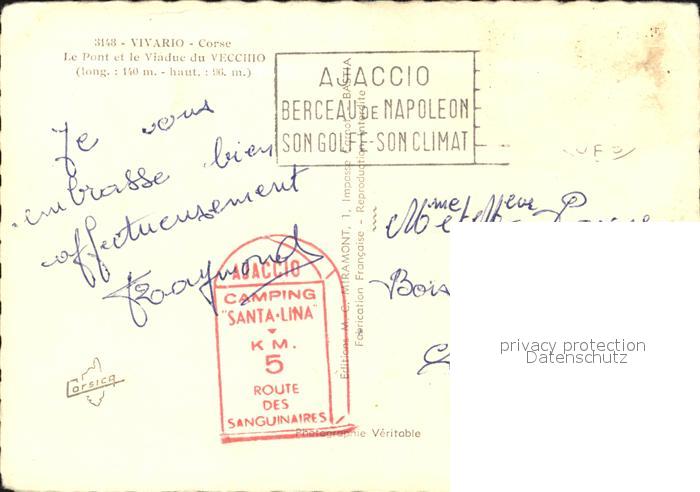 3148 - VIVARIO - Corse
Le Pont et le Viaduc du VECCHIO
(long. : 140 m. - haut. : 96. m.)
AJACCIO
BERCEAU DE NAPOLEON
SON GOLFE-SON CLIMAT
Je vous
embrasse bien
affectueusement
Raymond
AJACCIO
CAMPING
"SANTA-LINA"
KM.
5
ROUTE
DES
SANGUINAIRES
Corsica
Editions M. C. MIRAMONT, 1, Impasse BASTIA
Fabrication Française - Reproduction Interdite
Photographie Véritable
Bois
privacy protection
Datenschutz